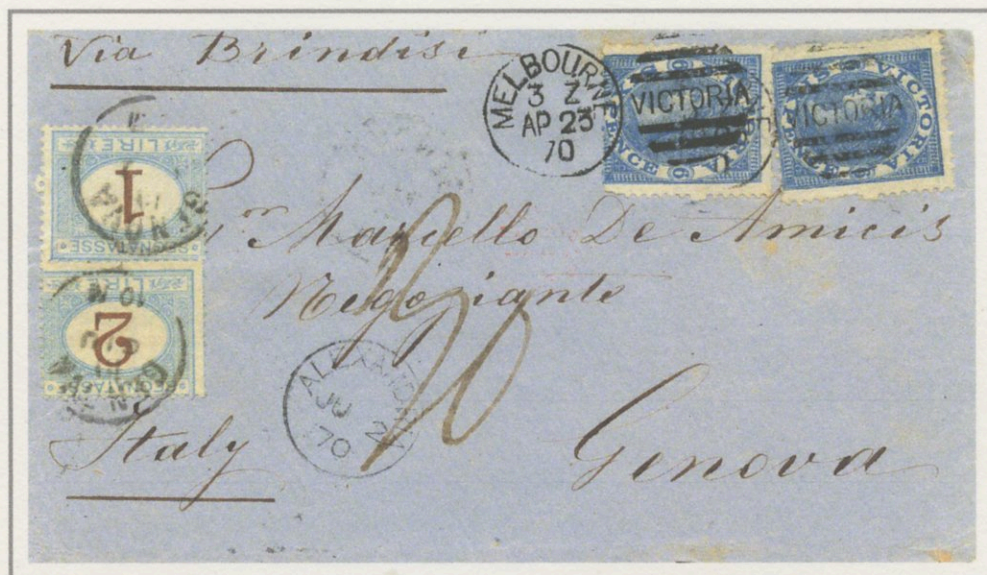 Via Brindisi
MELBOURNE
3 Z
AP 23
70
VICTORIA
VICTORIA
SIX PENCE
VICTORIA
VICTORIA
LIRE
1
SEGNATASSE
LIRE
2
SEGNATASSE
10 M
Sigr Marcello De Amicis
Negoziante
30
ALEXANDRIA
JU 2
70
Italy
Genova